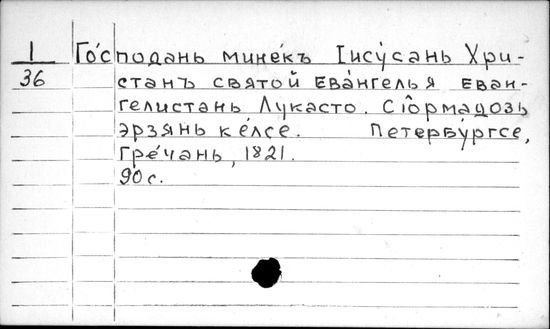 I Го́сподань мине́къ Іису́сань Хри-
36 станъ святой Ева́нгелья еван-
гелистань Лукасто. Сю̂рмадозь
эрзянь ке́лсе. Петербу́ргсе,
Гре́чань, 1821.
90 с.